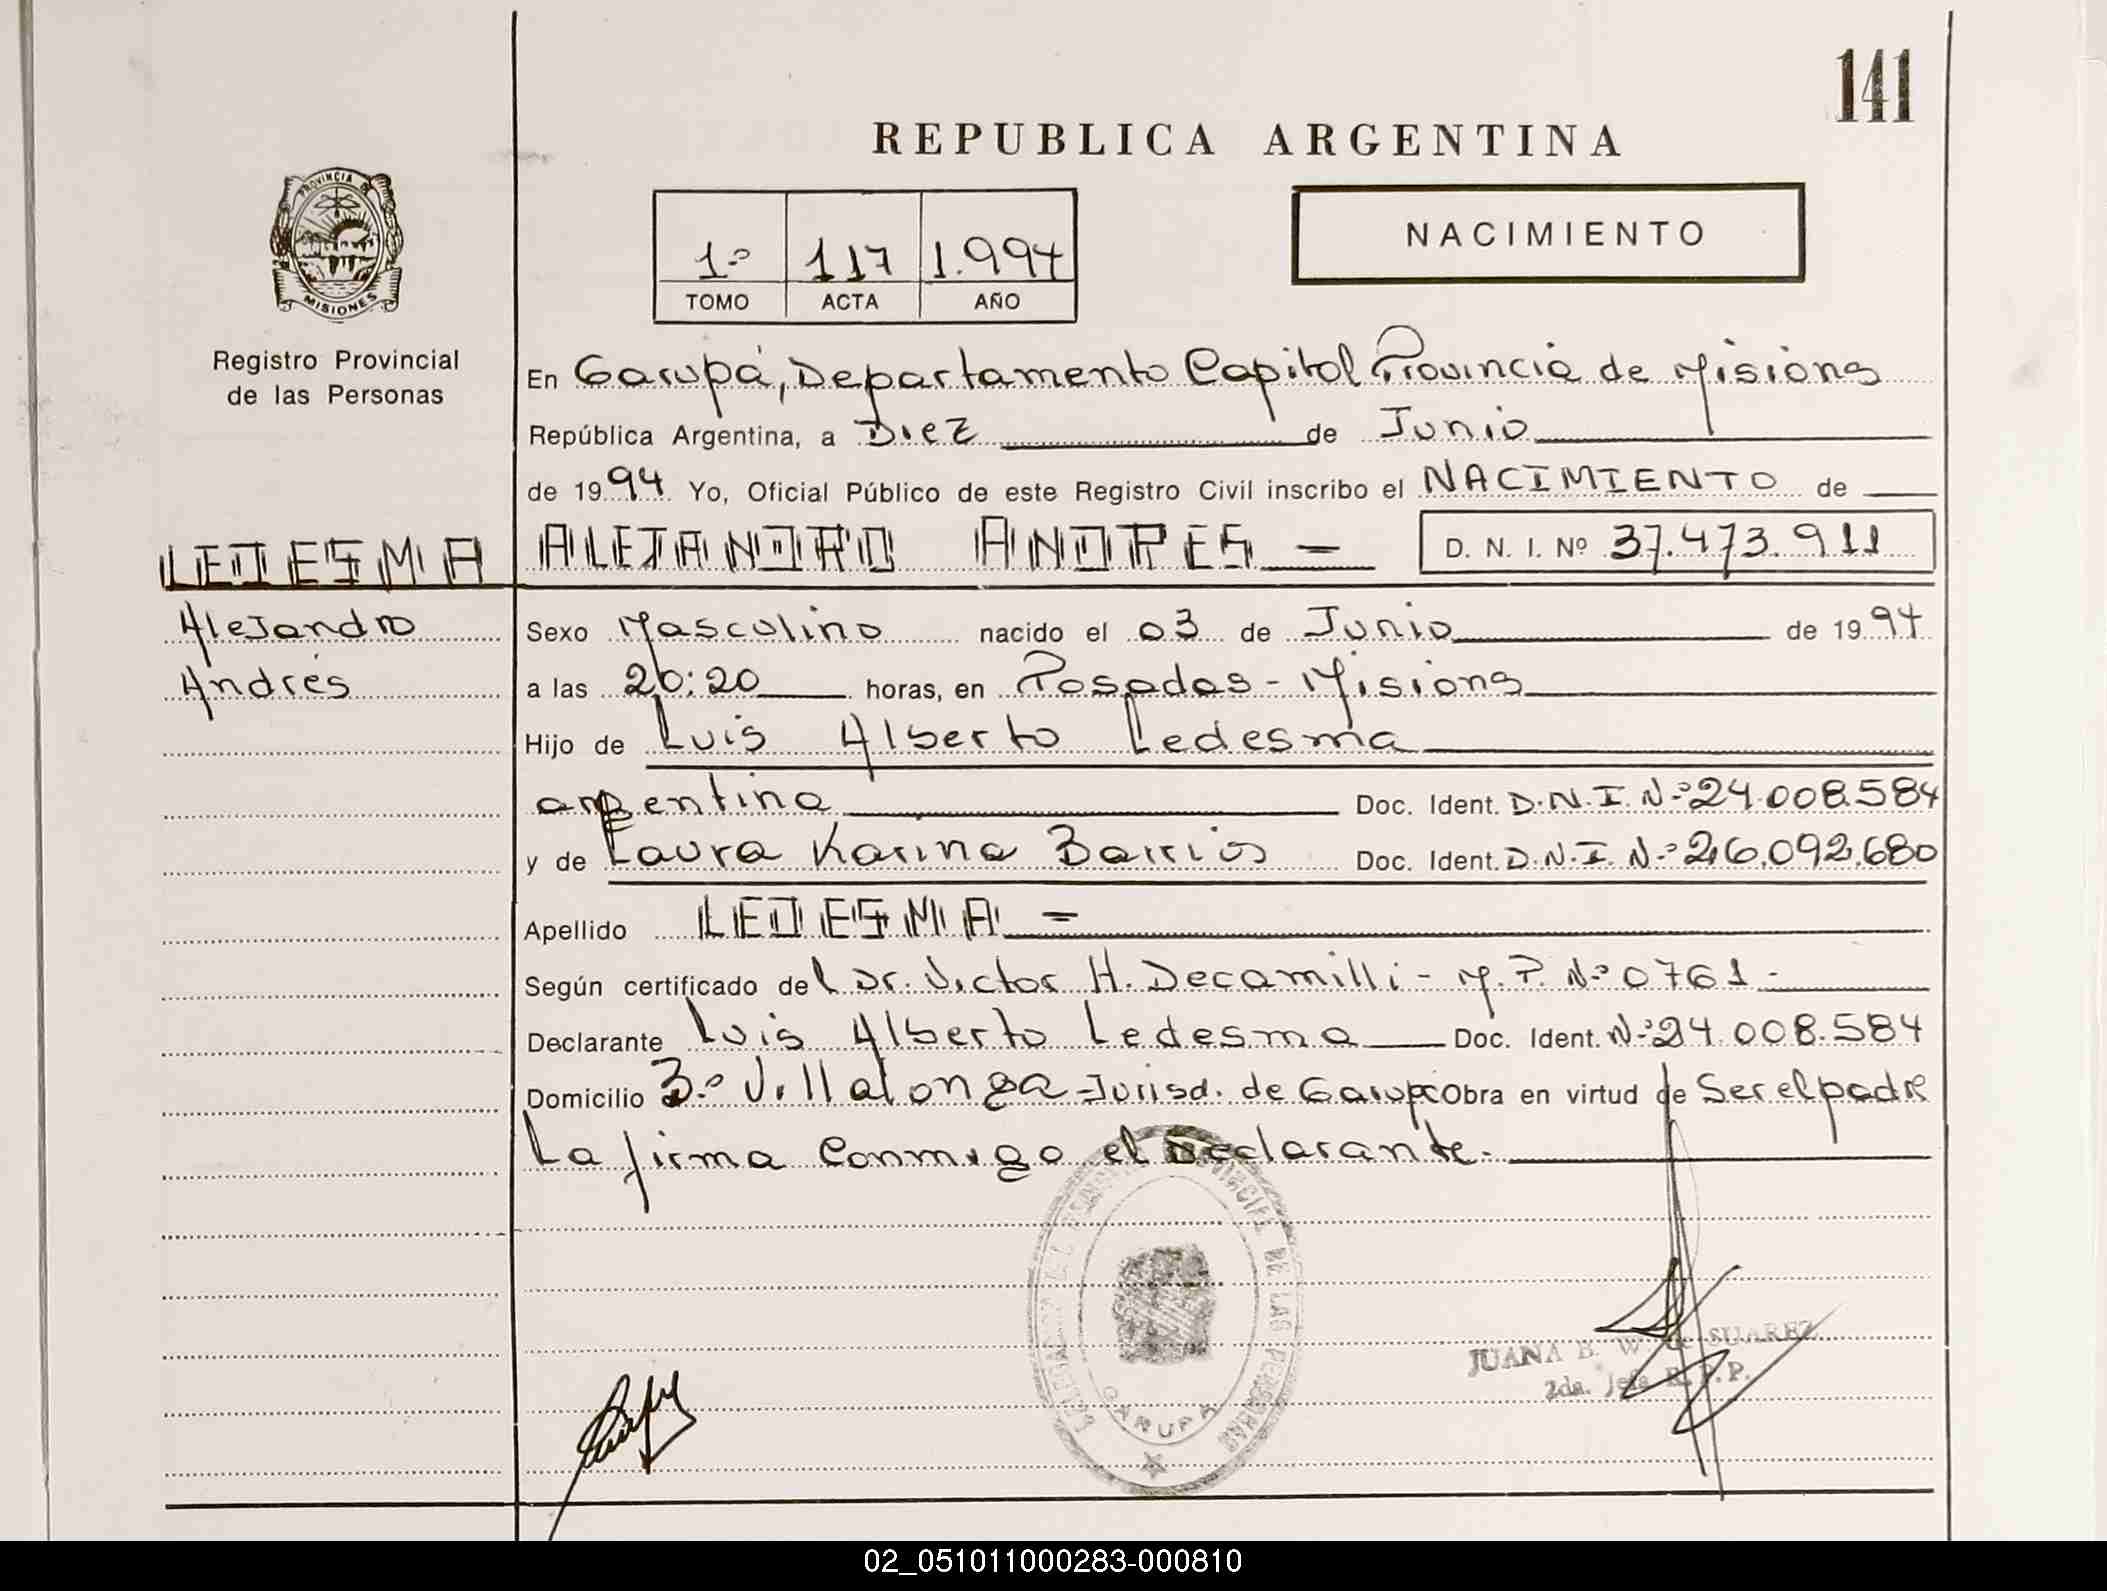 141
REPUBLICA ARGENTINA
PROVINCIA DE
MISIONES
Registro Provincial
de las Personas
1º 117 1.994
TOMO ACTA AÑO
NACIMIENTO
En Garupá, Departamento Capital Provincia de Misiones
República Argentina, a Diez de Junio
de 1994 Yo, Oficial Público de este Registro Civil inscribo el NACIMIENTO de
LEDESMA ALEJANDRO ANDRES = D. N. I. Nº 37.473.911
Alejandro
Andrés
Sexo Masculino nacido el 03 de Junio de 1994
a las 20:20 horas, en Posadas - Misiones
Hijo de Luis Alberto Ledesma
argentina Doc. Ident. D.N.I. Nº 24.008.584
y de Laura Karina Barrios Doc. Ident. D.N.I. Nº 26.092.680
Apellido LEDESMA =
Según certificado del Dr. Victor H. Decamilli - M.P. Nº 0761 -
Declarante Luis Alberto Ledesma Doc. Ident. Nº 24.008.584
Domicilio Bº Villalonga - Jurisd. de Garupá Obra en virtud de Ser el padre
La firma Conmigo el Declarante.
PROVINCIAL DE LAS PERSONAS
GARUPA
JUANA B. W. de SUAREZ
2da. Jefa R.P.P.
02_051011000283-000810